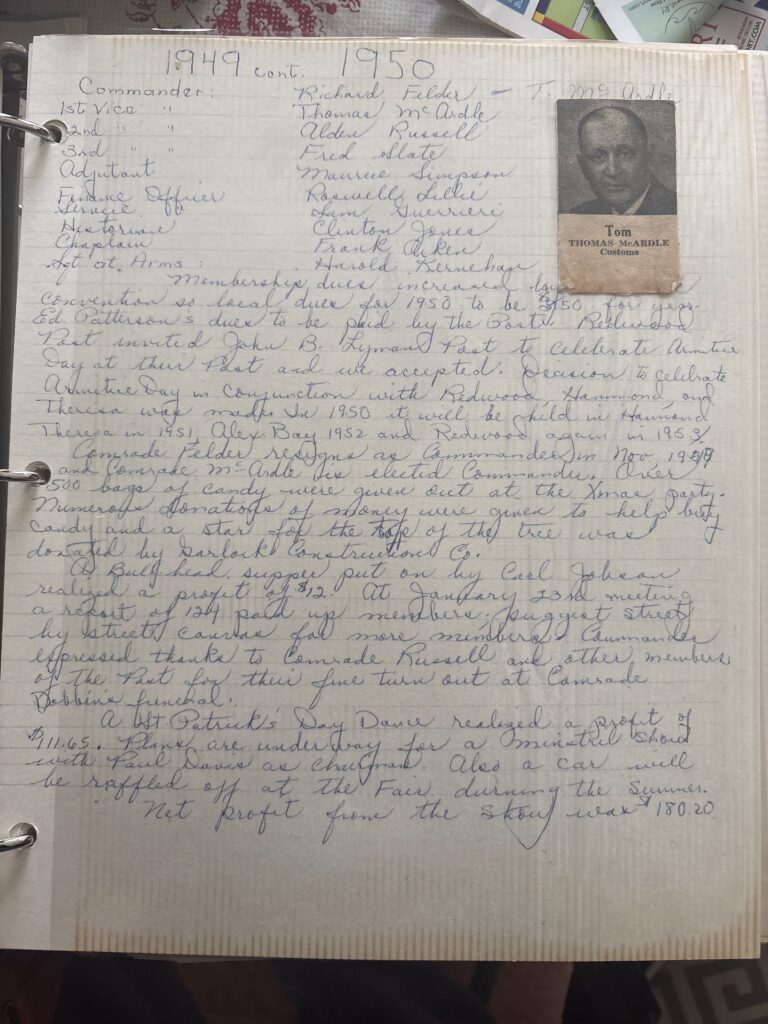 1949 cont. 1950
Commander: Richard Felder - T. McArdle
1st Vice " Thomas McArdle
2nd " " Alden Russell
3rd " " Fred Slate
Adjutant Maurice Simpson
Finance Officer Roswell Lillie
Service Off Sam Guerrieri
Historian Clinton Jones
Chaplain Frank Aiken
Sgt. at. Arms: Harold Kernehan
Tom
THOMAS McARDLE
Customs
Membership dues increased
convention so local dues for 1950 to be $3.50 for year.
Ed Patterson's dues to be paid by the Post. Redwood
Post invited John B. Lyman Post to celebrate Armitice
Day at their Post and we accepted. Decision to celebrate
Armitice Day in conjunction with Redwood, Hammond, and
Theresa was made. In 1950 it will be held in Hammond
Theresa in 1951, Alex Bay 1952 and Redwood again in 1953.
Comrade Felder resigns as Commander in Nov 1949
and Comrade McArdle is elected Commander. Over
500 bags of candy were given out at the Xmas party.
Numerous donations of money were given to help buy
candy and a star for the top of the tree was
donated by Garlock Construction Co.
A Bullhead supper put on by Carl Jobson
realized a profit of $12. At January 23rd meeting
a report of 124 paid up members; suggest street
by street canvas for more members. Commander
expressed thanks to Comrade Russell and other members
of the Post for their fine turn out at Comrade
Dobbin's funeral.
A St Patrick's Day Dance realized a profit of
$911.65. Plans are underway for a Minstril Show
with Paul Davis as chairman. Also a car will
be raffled off at the Fair durning the Summer.
Net profit from the Show was $180.20